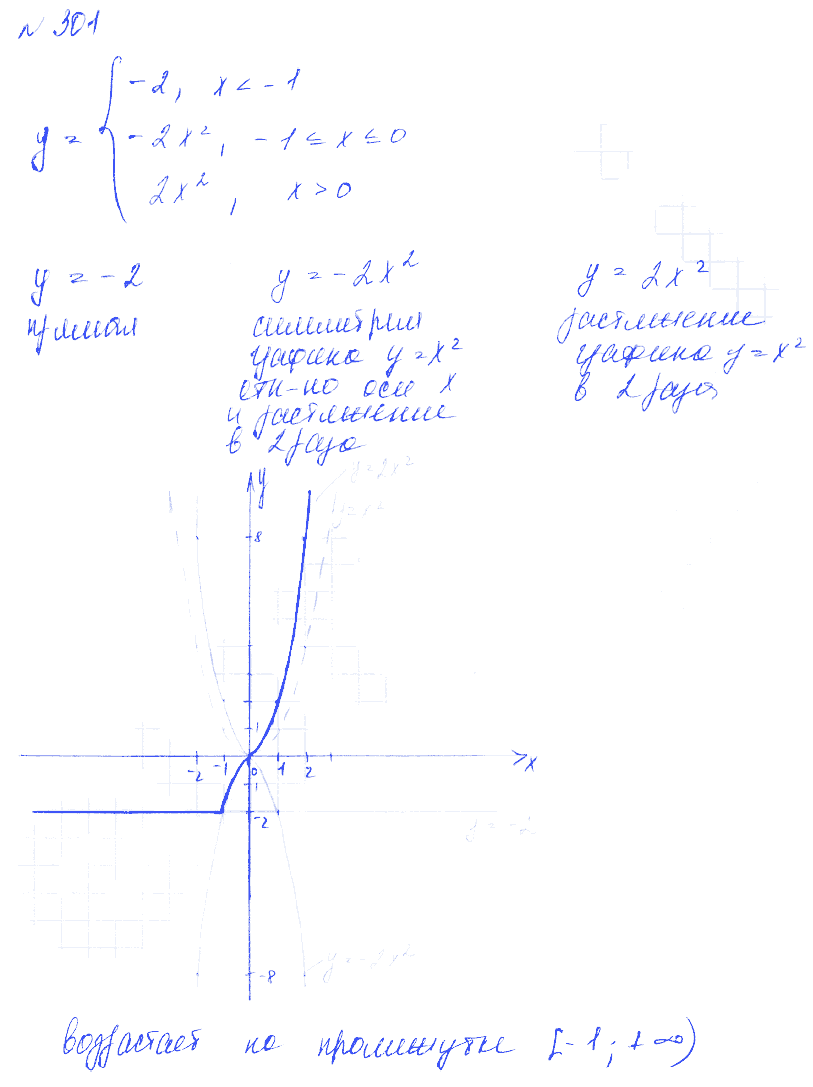 № 301
y = { -2, x < -1
-2x², -1 ≤ x ≤ 0
2x², x > 0
y = -2
y = -2x²
y = 2x²
прямая
симметрия
графика y = x²
отн-но оси x
и растяжение
в 2 раза
растяжение
графика y = x²
в 2 раза
y
y = 2x²
y = x²
8
1
-2 -1 0 1 2 x
-1
-2
y = -2
y = -2x²
-8
возрастает на промежутке [-1; +∞)